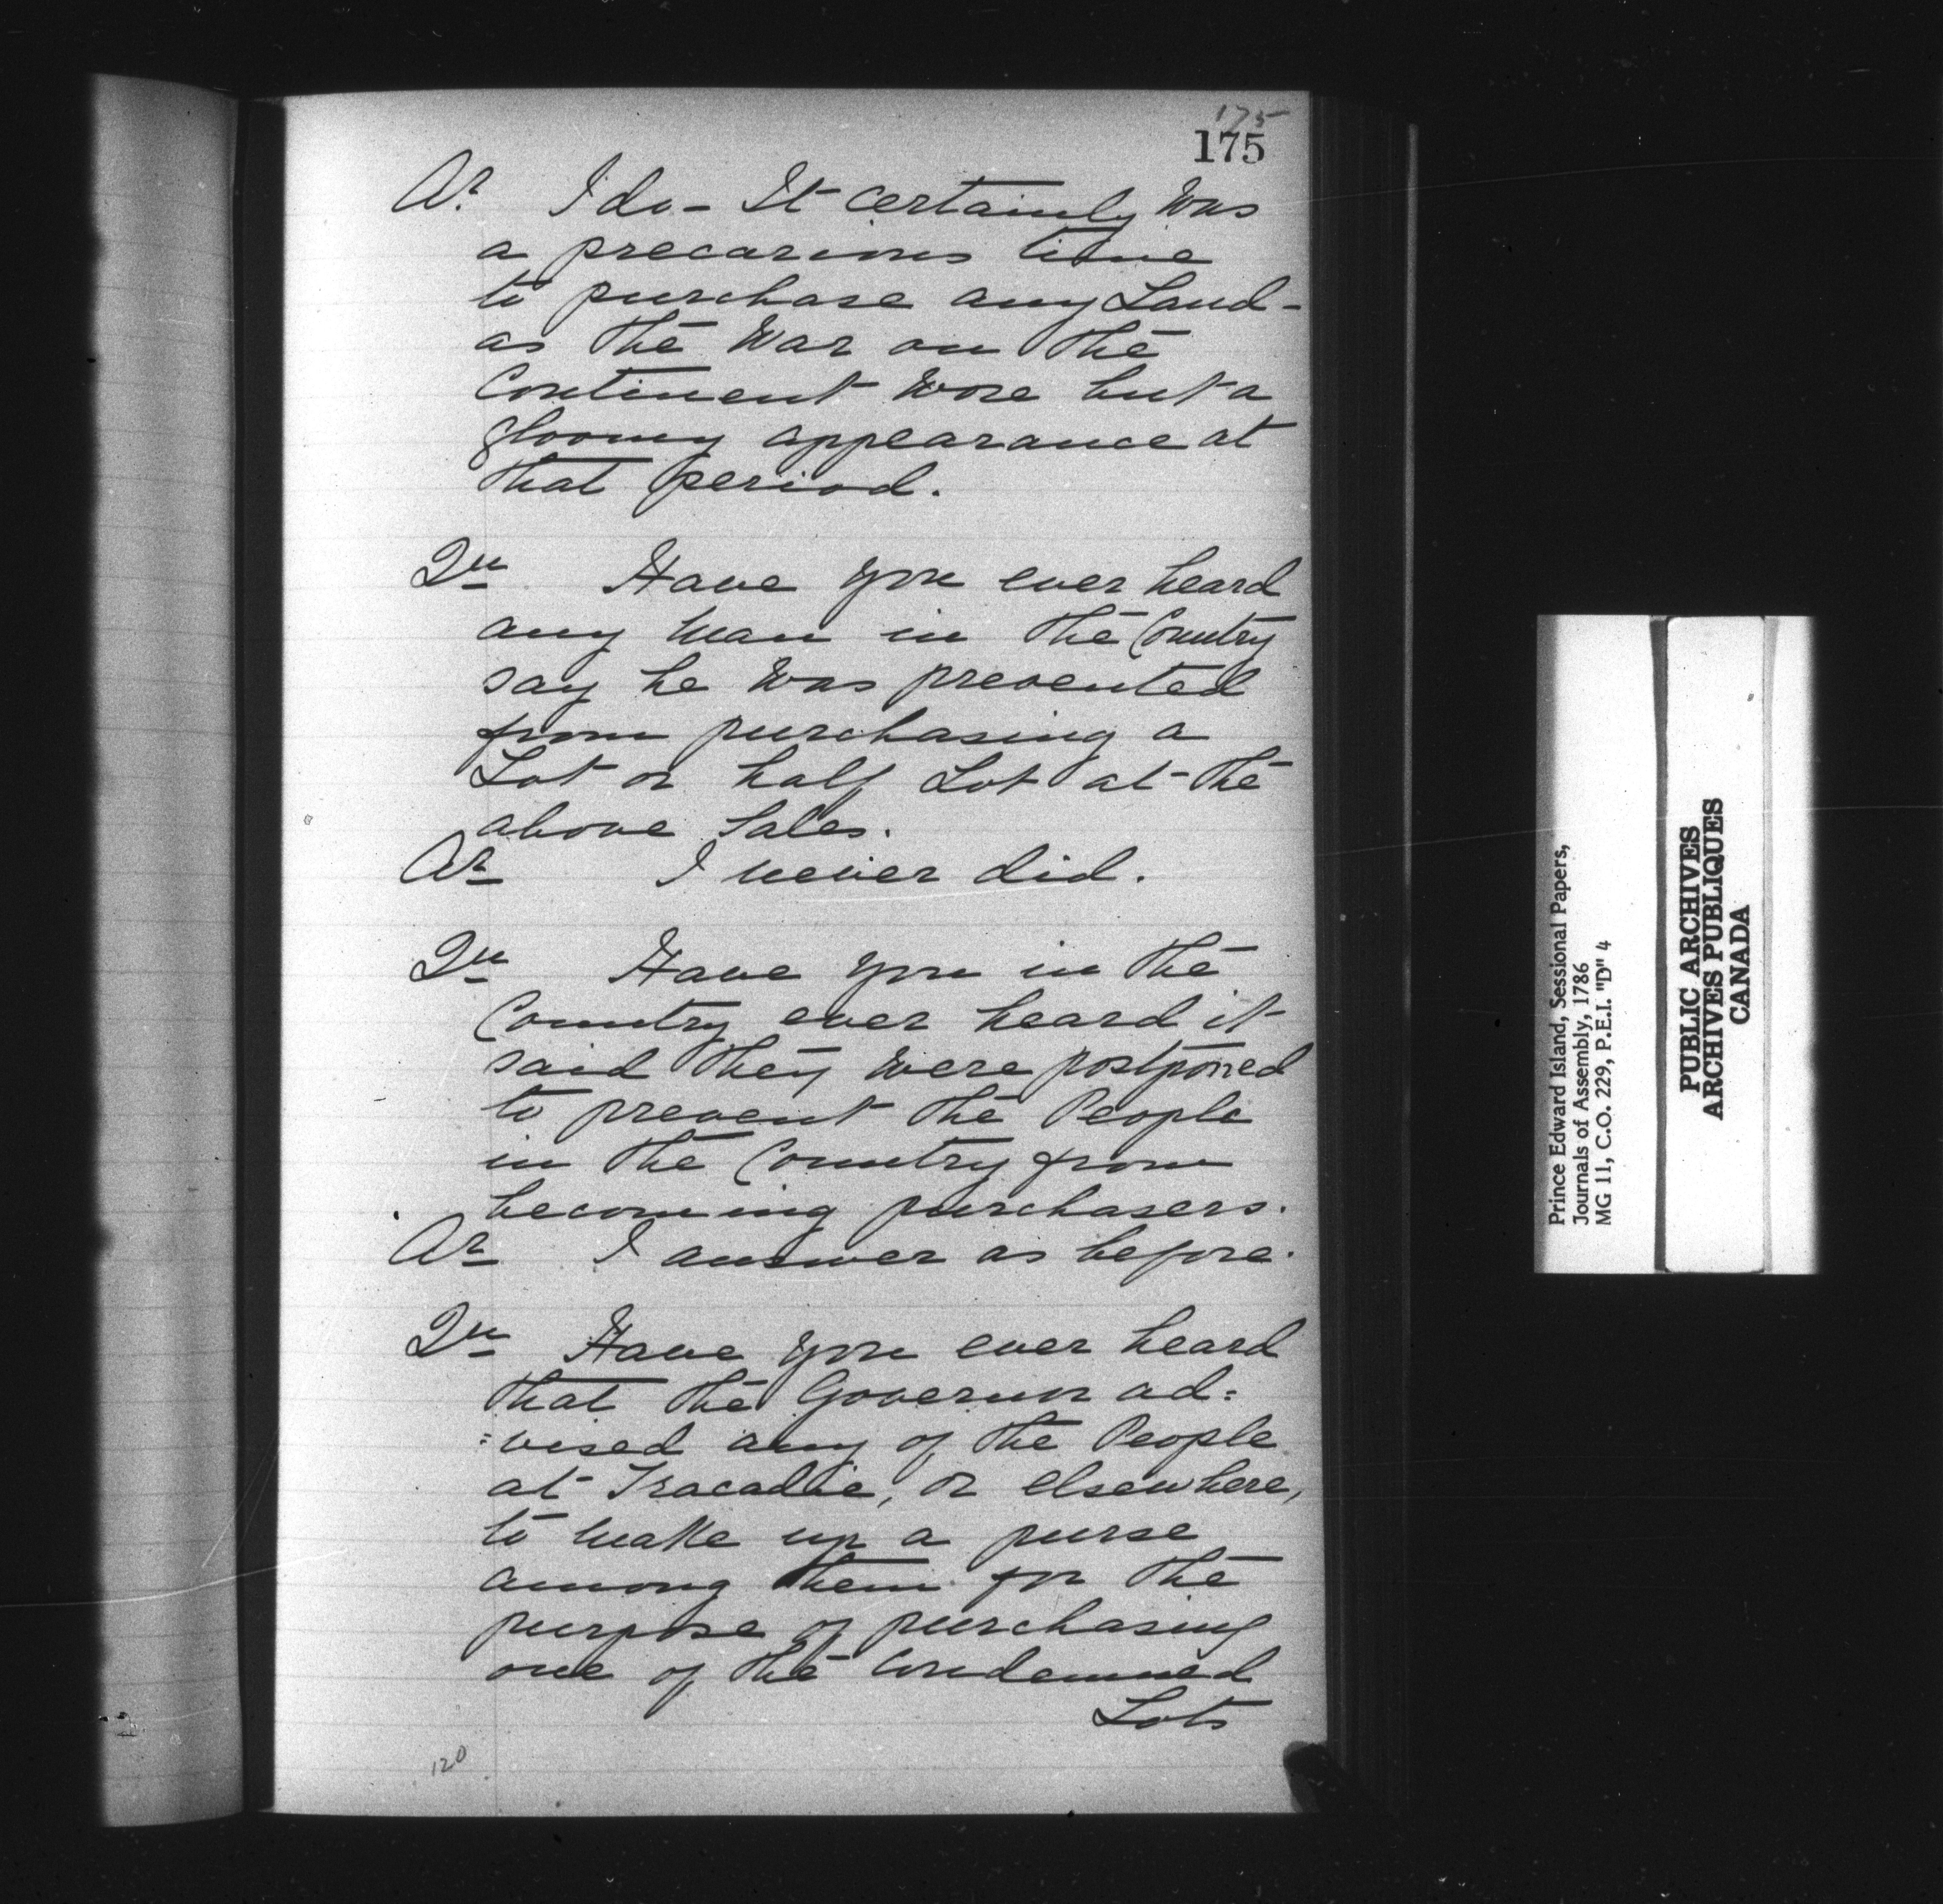 175
175
Ar. I do - It certainly was
a precarious time
to purchase any Land -
as the War on the
Continent wore but a
gloomy appearance at
that period.
Qu Have you ever heard
any man in the Country
say he was prevented
from purchasing a
Lot or half Lot at the
above Sales.
Ar I never did.
Qu Have you in the
Country ever heard it
said they were postponed
to prevent the People
in the Country from
becoming purchasers.
Ar I answer as before.
Qu Have you ever heard
that the Governor ad=
=vised any of the People
at Tracadie, or elsewhere,
to make up a purse
among them for the
purpose of purchasing
one of the condemned
Lots
120
Prince Edward Island, Sessional Papers,
Journals of Assembly, 1786
MG 11, C.O. 229, P.E.I. "D" 4
PUBLIC ARCHIVES
ARCHIVES PUBLIQUES
CANADA